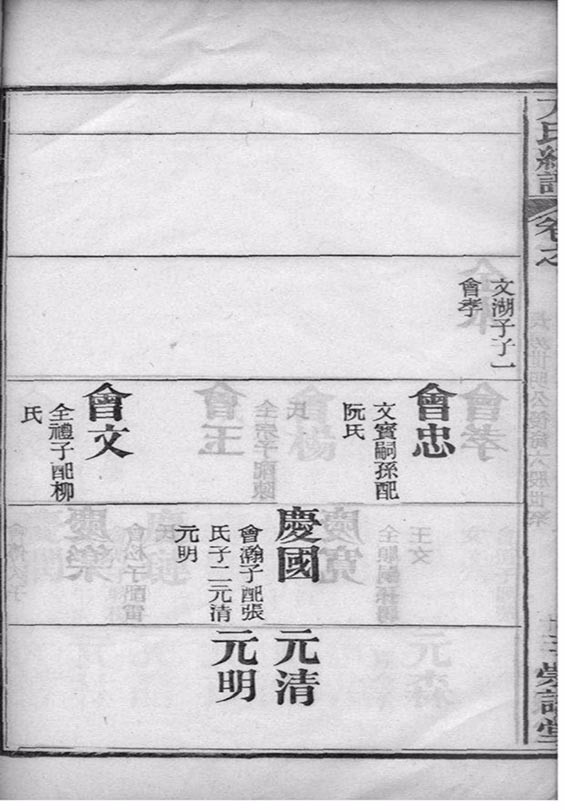 卷之
文湖子子一
會孝
會忠
文賓嗣孫配
阮氏
會文
全禮子配柳
氏
慶國
會瀚子配張
氏子二元清
元明
元清
元明